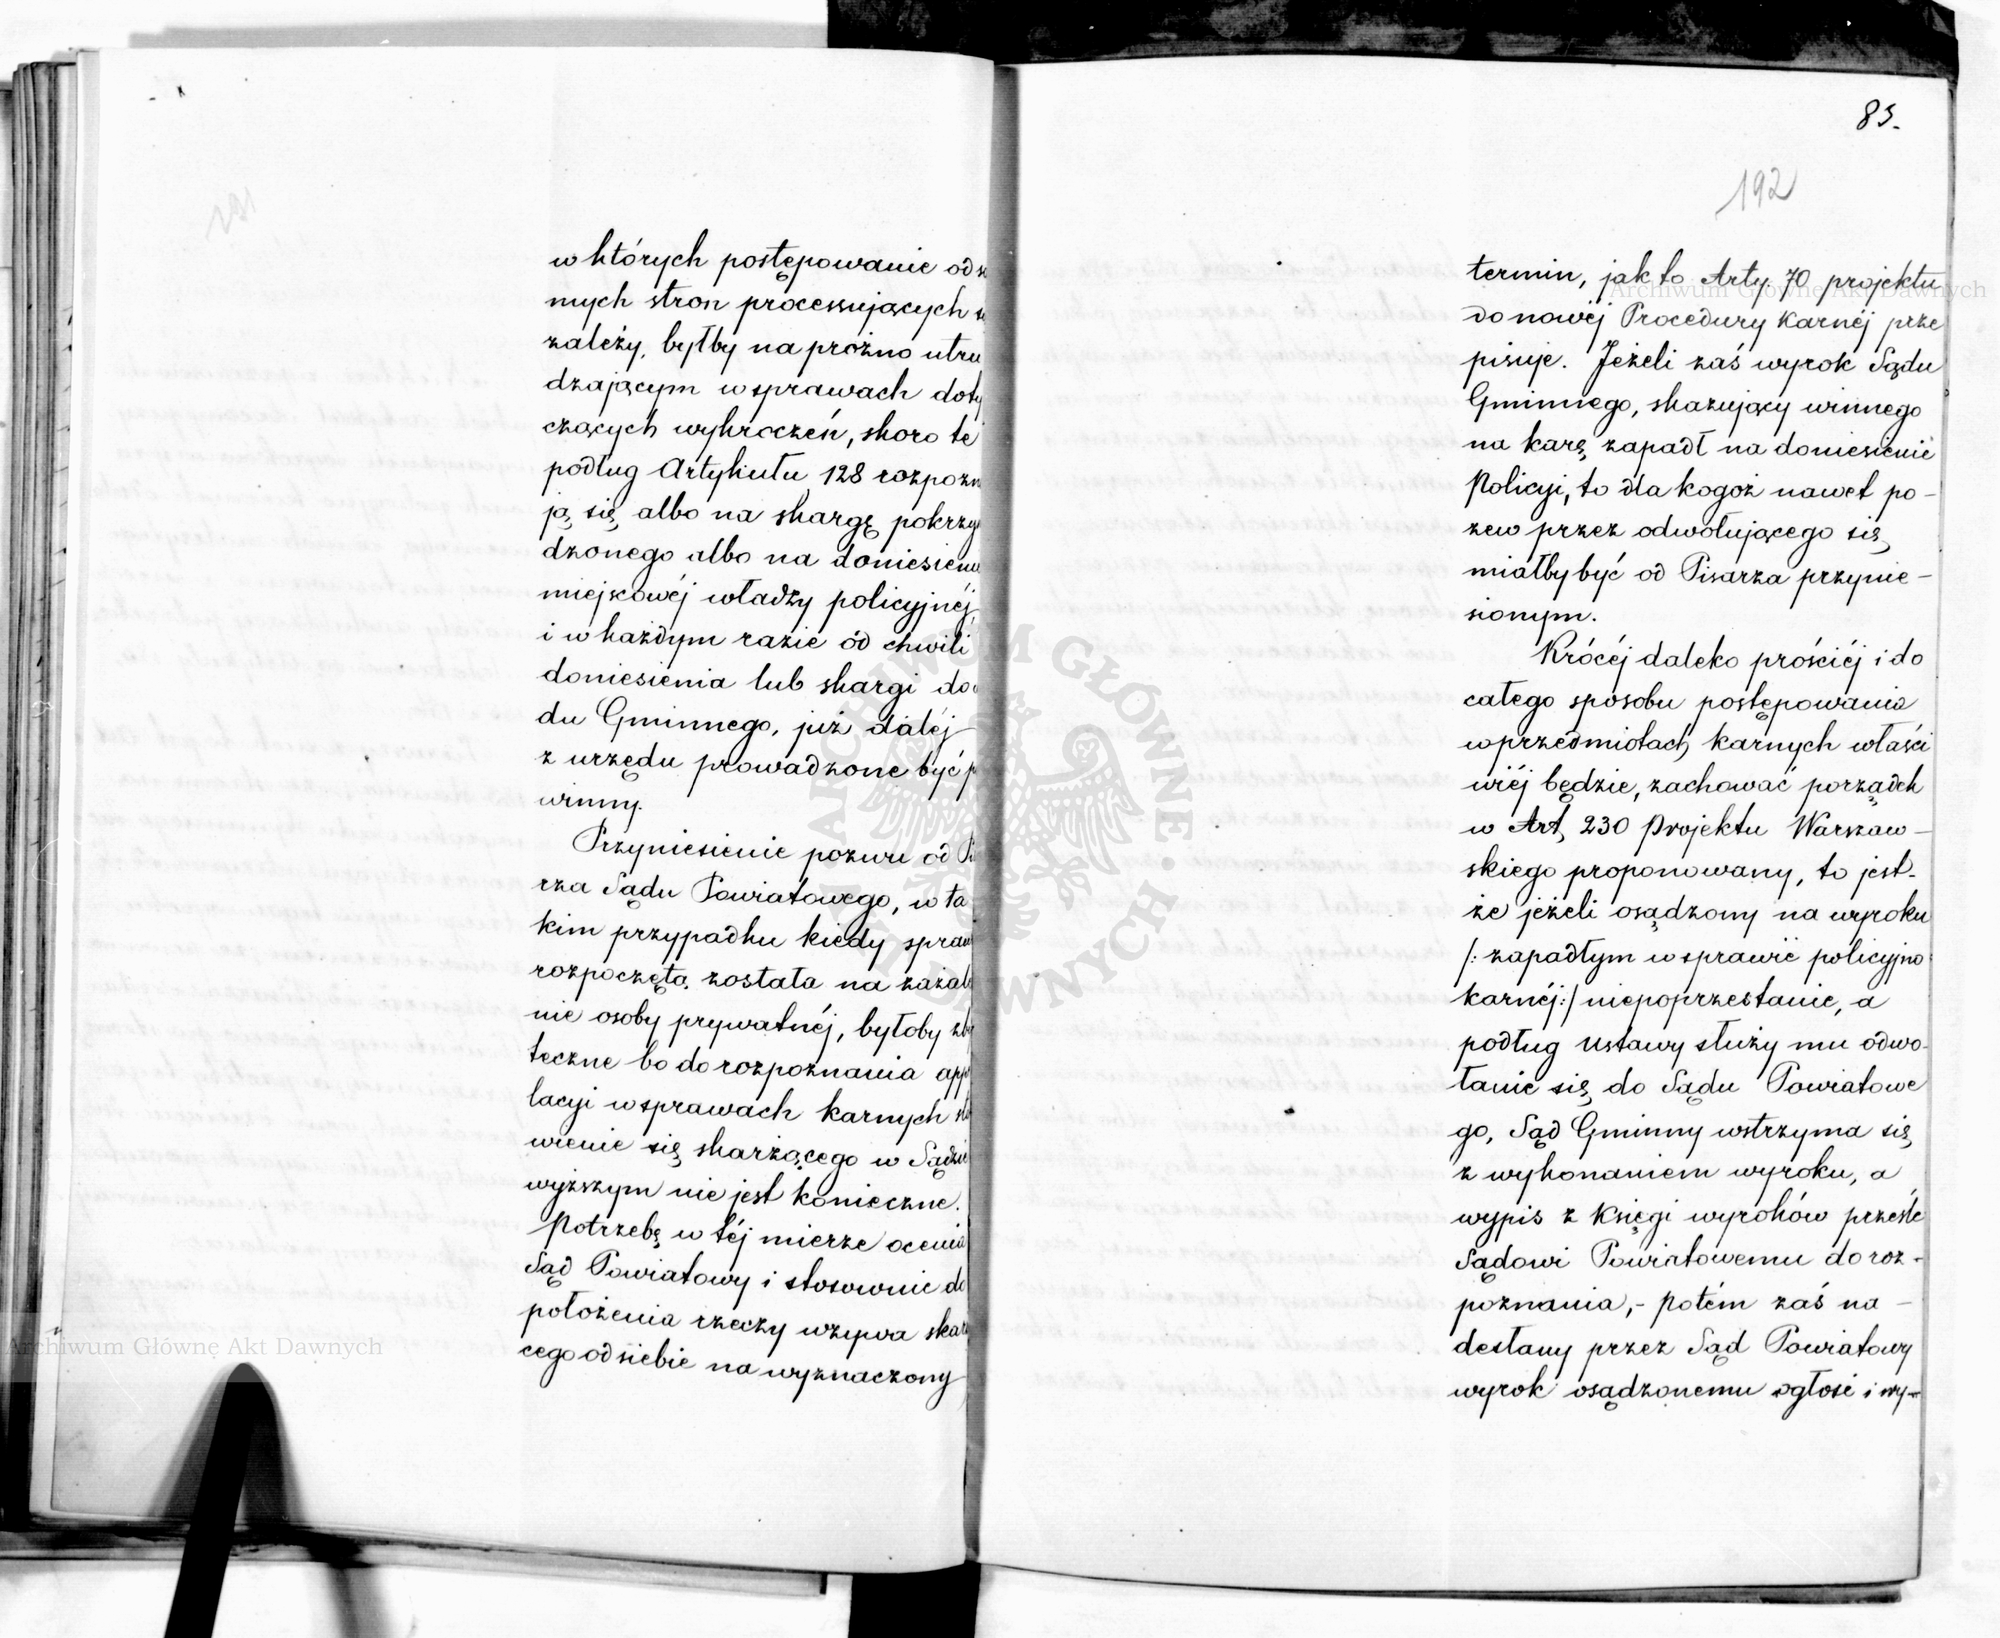 w których postępowanie od s
mych stron processujących
zależy, byłby na próżno utru
dzającym w sprawach doty
czących wykroczeń, skoro te
podług Artykułu 128 rozpozn
ją się albo na skargę pokrzy
dzonego albo na doniesieni
miejscowéj władzy policyjnéj
i w każdym razie od chwili
doniesienia lub skargi do
du Gminnego, już daléj
z urzędu prowadzone być p
winny.
Przyniesienie pozwu od Pi
rza Sądu Powiatowego, w ta
kim przypadku kiedy spraw
rozpoczętą została na zażal
nie osoby prywatnéj, byłoby zb
teczne bo do rozpoznania app
lacyi w sprawach karnych sta
wienie się skarżącego w Sądzie
wyższym nie jest konieczne.
Potrzebę w téj mierze oceni
Sąd Powiatowy i stosownie do
położenia rzeczy wzywa skar
cego od siebie na wyznaczony
85.
192
termin, jak to Arty. 70 projektu
do nowéj Procedury Karnéj prze
pisuje. Jeżeli zaś wyrok Sądu
Gminnego, skazujący winnego
na karę zapadł na doniesienie
Policyi, to dla kogoż nawet po-
zew przez odwołującego się
miałby być od Pisarza przynie-
sionym.
Krócéj daleko prościéj i do
całego sposobu postępowania
w przedmiotach karnych właści
wiéj będzie, zachować porządek
w Art. 230 Projektu Warszaw-
skiego proponowany, to jest-
że jeżeli osądzony na wyroku
/: zapadłym w sprawie policyjno
karnéj:/ niepoprzestanie, a
podług ustawy służy mu odwo-
łanie się do Sądu Powiatowe
go, Sąd Gminny wstrzyma się
z wykonaniem wyroku, a
wypis z Księgi wyroków prześle
Sądowi Powiatowemu do roz-
poznania,- potém zaś na-
desłany przez Sąd Powiatowy
wyrok osądzonemu ogłosi i wy-
Archiwum Główne Akt Dawnych
Archiwum Główne Akt Dawnych
ARCHIWUM GŁÓWNE AKT DAWNYCH